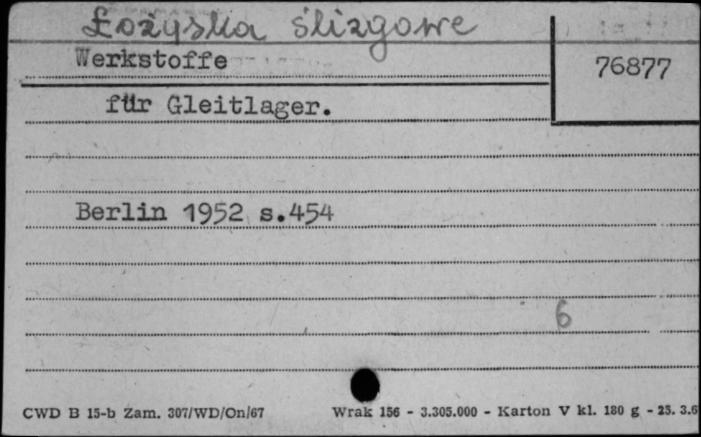 Łożyska ślizgowe
Werkstoffe
76877
für Gleitlager.
Berlin 1952 s.454
6
CWD B 15-b Zam. 307/WD/On/67 Wrak 156 - 3.305.000 - Karton V kl. 180 g - 25. 3.6